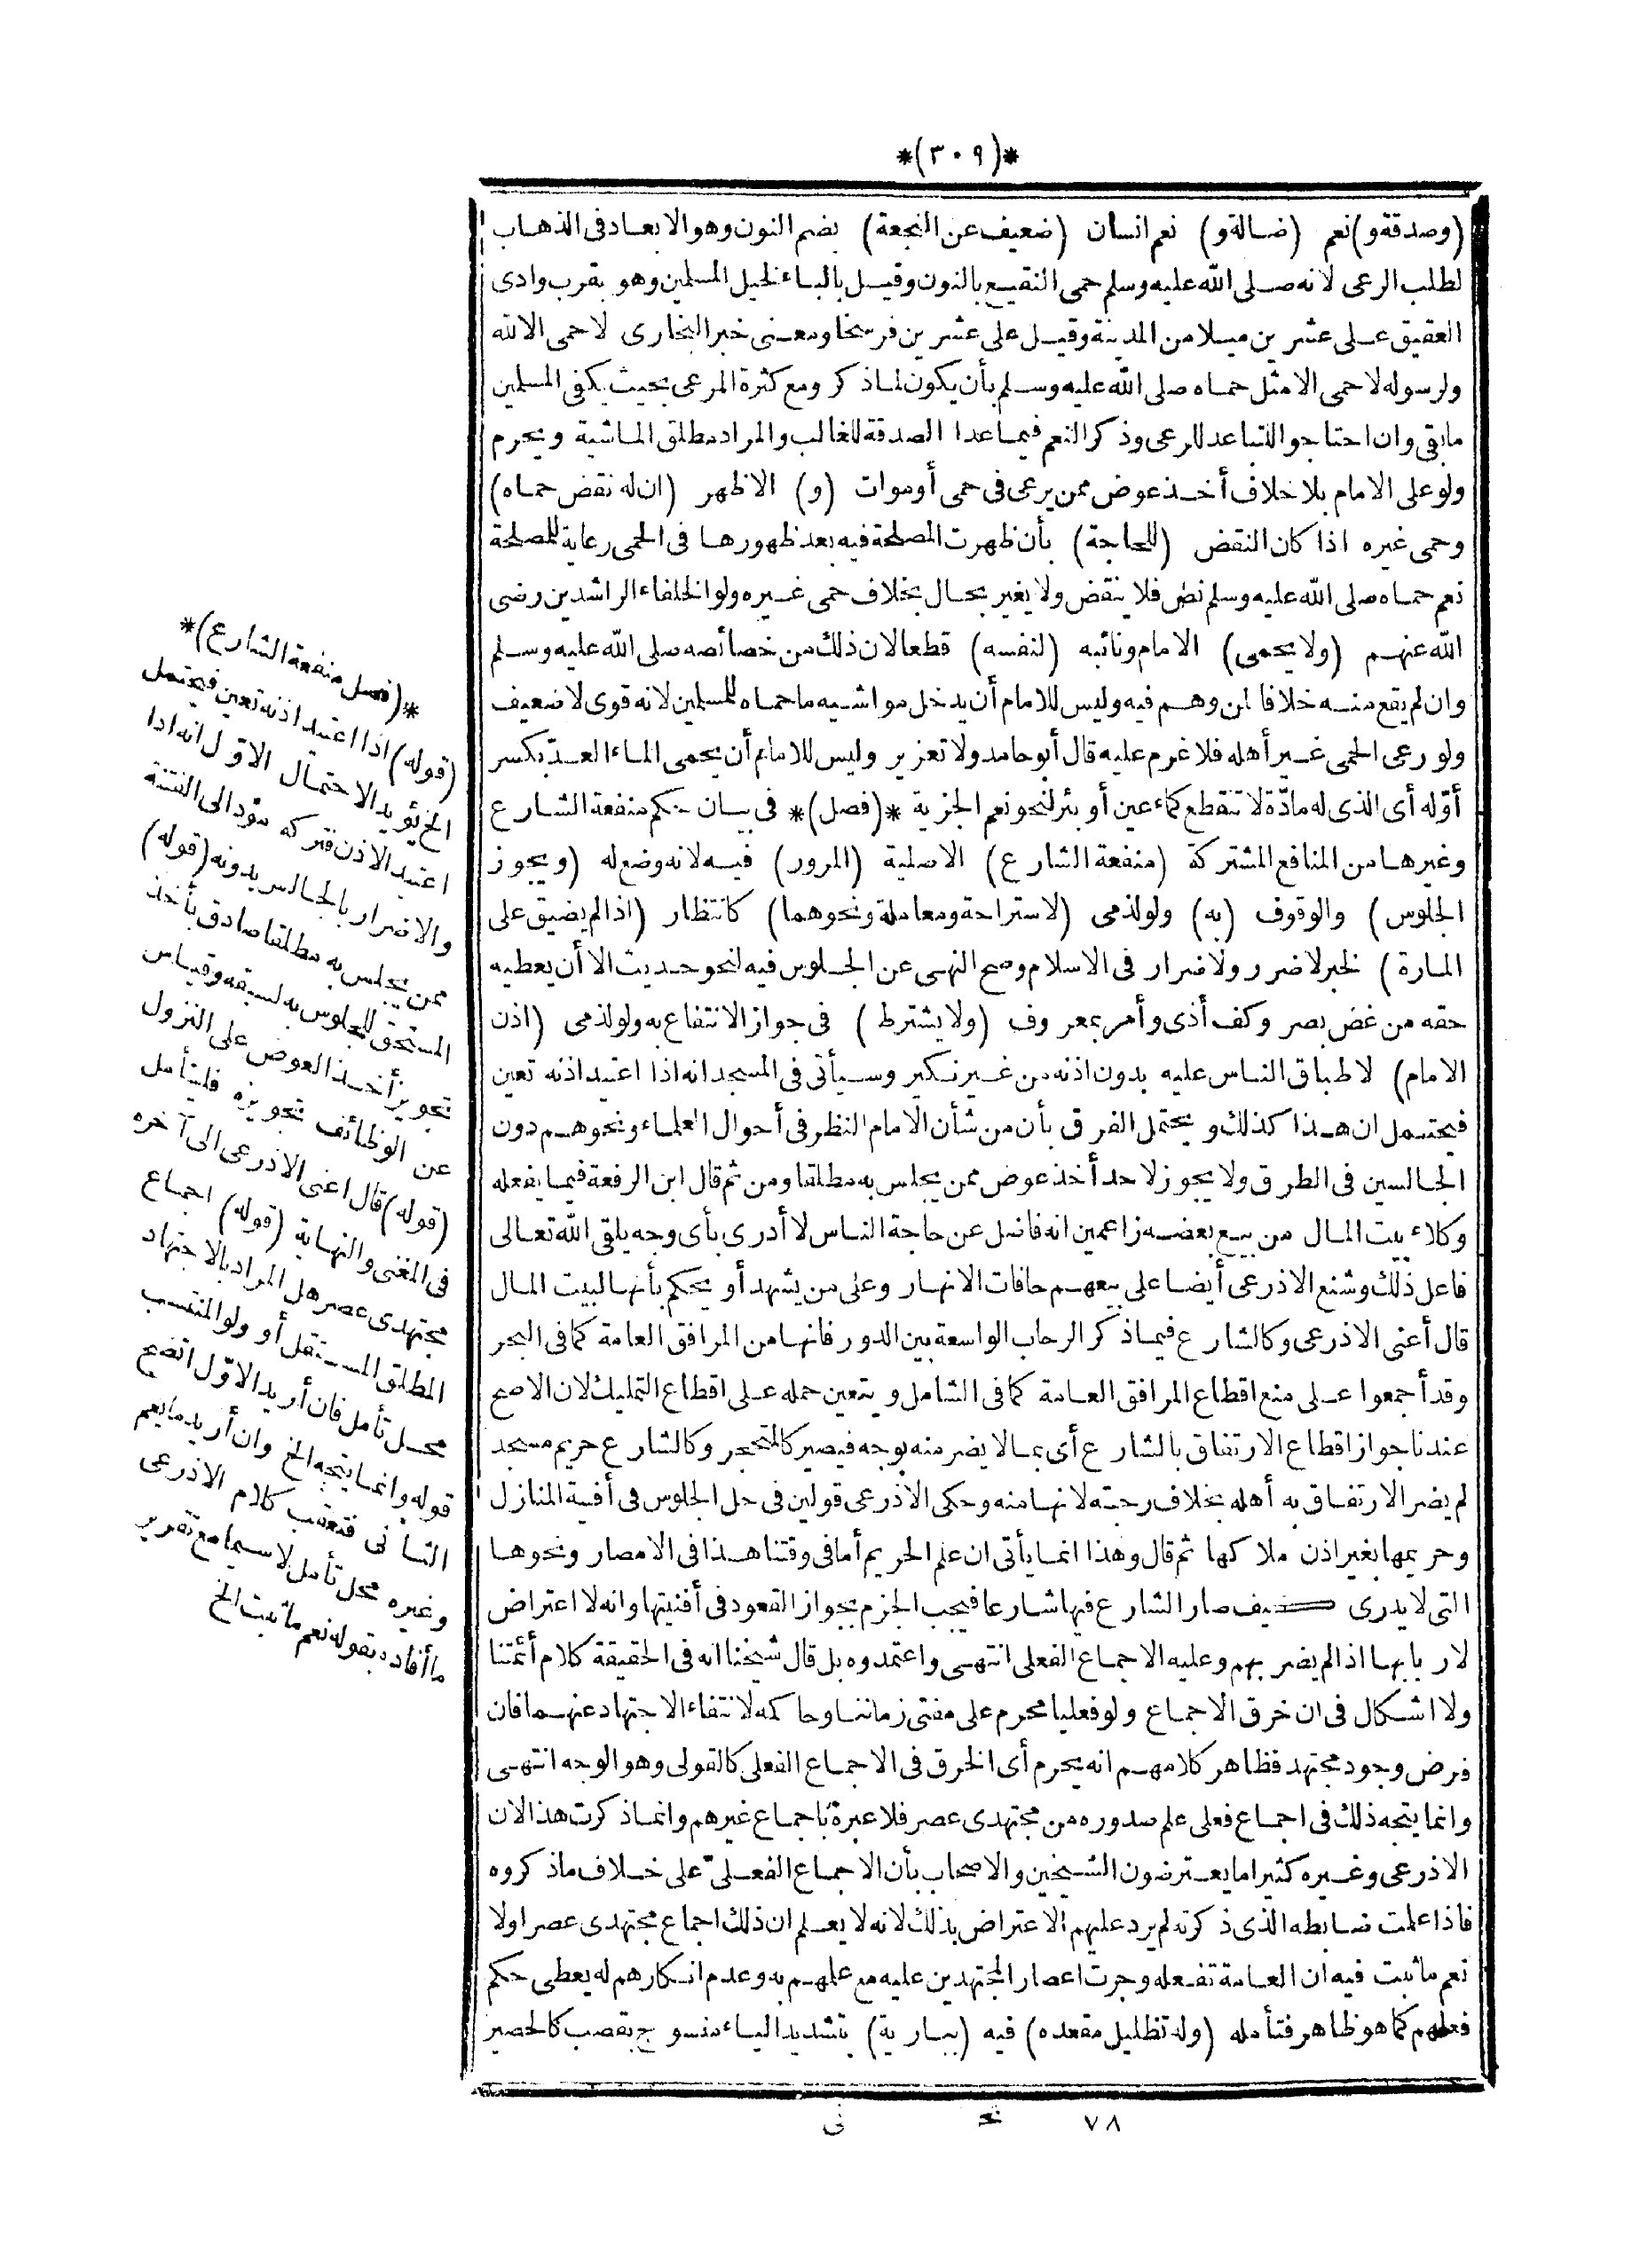 *(٣٠٩)*
(وصدقة و) نعم (ضالة و) نعم انسان (ضعيف عن النجعة) بضم النون وهو الابعاد فى الذهاب
لطلب الرعى لانه صلى الله عليه وسلم حمى النقيع بالنون وقيل بالباء لخيل المسلمين وهو بقرب وادى
العقيق على عشرين ميلا من المدينة وقيل على عشرين فرسخا ومعنى خبر البخارى لا حمى الا لله
ولرسوله لا حمى الا مثل حماه صلى الله عليه وسلم بأن يكون لما ذكر ومع كثرة المرعى بحيث يكفى المسلمين
ما بقى وان احتاجوا للتباعد للرعى وذكر النعم فيما عدا الصدقة للغالب والمراد مطلق الماشية ويحرم
ولو على الامام بلا خلاف أخذ عوض ممن يرعى فى حمى أو موات (و) الاظهر (ان له نقض حماه)
وحمى غيره اذا كان النقض (للحاجة) بأن ظهرت المصلحة فيه بعد ظهورها فى الحمى رعاية للمصلحة
نعم حماه صلى الله عليه وسلم نص فلا ينقض ولا يغير بحال بخلاف حمى غيره ولو الخلفاء الراشدين رضى
الله عنهم (ولا يحمى) الامام ونائبه (لنفسه) قطعا لان ذلك من خصائصه صلى الله عليه وسلم
وان لم يقع منه خلافا لمن وهم فيه وليس للامام أن يدخل مواشيه ما حماه للمسلمين لانه قوى لا ضعيف
ولو رعى الحمى غير أهله فلا غرم عليه قال أبو حامد ولا تعزير وليس للامام أن يحمى الماء العدّ بكسر
أوّله أى الذى له مادّة لا تنقطع كماء عين أو بئر لنحو نعم الجزية *(فصل)* فى بيان حكم منفعة الشارع
وغيرها من المنافع المشتركة (منفعة الشارع) الاصلية (المرور) فيه لانه وضع له (ويجوز
الجلوس) والوقوف (به) ولو لذمى (لاستراحة ومعاملة ونحوهما) كانتظار (اذا لم يضيق على
المارة) لخبر لا ضرر ولا ضرار فى الاسلام وصح النهى عن الجلوس فيه لنحو حديث الا أن يعطيه
حقه من غض بصر وكف أذى وأمر بمعروف (ولا يشترط) فى جواز الانتفاع به ولو لذمى (اذن
الامام) لاطباق الناس عليه بدون اذنه من غير نكير وسيأتى فى المسجد انه اذا اعتيد اذنه تعين
فيحتمل ان هذا كذلك ويحتمل الفرق بأن من شأن الامام النظر فى أحوال العلماء ونحوهم دون
الجالسين فى الطرق ولا يجوز لاحد أخذ عوض ممن يجلس به مطلقا ومن ثم قال ابن الرفعة فيما يفعله
وكلاء بيت المال من بيع بعضه زاعمين انه فاضل عن حاجة الناس لا أدرى بأى وجه يلقى الله تعالى
فاعل ذلك وشنع الاذرعى أيضا على بيعهم حافات الانهار وعلى من يشهد أو يحكم بأنها لبيت المال
قال أعنى الاذرعى وكالشارع فيما ذكر الرحاب الواسعة بين الدور فانها من المرافق العامة كما فى البحر
وقد أجمعوا على منع اقطاع المرافق العامة كما فى الشامل ويتعين حمله على اقطاع التمليك لان الاصح
عندنا جواز اقطاع الارتفاق بالشارع أى بما لا يضر منه بوجه فيصير كالمتحجر وكالشارع حريم مسجد
لم يضر الارتفاق به أهله بخلاف رحبته لانها منه وحكى الاذرعى قولين فى حل الجلوس فى أفنية المنازل
وحريمها بغير اذن ملاكها ثم قال وهذا انما يأتى ان علم الحريم أما فى وقتنا هذا فى الامصار ونحوها
التى لا يدرى كيف صار الشارع فيها شارعا فيجب الجزم بجواز القعود فى أفنيتها وانه لا اعتراض
لاربابها اذا لم يضر بهم وعليه الاجماع الفعلى انتهى واعتمدوه بل قال شيخنا انه فى الحقيقة كلام أئمتنا
ولا اشكال فى ان خرق الاجماع ولو فعليا محرم على مفتى زماننا وحاكمه لانتفاء الاجتهاد عنهما فان
فرض وجود مجتهد فظاهر كلامهم انه يحرم أى الخرق فى الاجماع الفعلى كالقولى وهو الوجه انتهى
وانما يتجه ذلك فى اجماع فعلى علم صدوره من مجتهدى عصر فلا عبرة باجماع غيرهم وانما ذكرت هذا لان
الاذرعى وغيره كثيرا ما يعترضون الشيخين والاصحاب بأن الاجماع الفعلىّ على خلاف ما ذكروه
فاذا علمت ضابطه الذى ذكرته لم يرد عليهم الاعتراض بذلك لانه لا يعلم ان ذلك اجماع مجتهدى عصر اولا
نعم ما ثبت فيه ان العامة تفعله وجرت اعصار المجتهدين عليه مع علمهم به وعدم انكارهم له يعطى حكم
فعلهم كما هو ظاهر فتأمله (وله تظليل مقعده) فيه (ببارية) بتشديد الياء منسوج بقصب كالحصير
*(فصل منفعة الشارع)*
(قوله) اذا اعتيد اذنه تعين فيحتمل
الخ يؤيد الاحتمال الاوّل انه اذا
اعتيد الاذن فتركه مؤد الى الفتنة
والاضرار بالجالس بدونه (قوله)
ممن يجلس به مطلقا صادق بأخذ
المستحق للجلوس به لسبقه وقياس
تجويز أخذ العوض على النزول
عن الوظائف تجويزه فليتأمل
(قوله) قال اعنى الاذرعى الى آخره
فى المغنى والنهاية (قوله) اجماع
مجتهدى عصر هل المراد بالاجتهاد
المطلق المستقل أو ولو المنتسب
محل تأمل فان أريد الاوّل اتضح
قوله وانما يتجه الخ وان أريد ما يعم
الثانى فتعقب كلام الاذرعى
وغيره محل تأمل لا سيما مع تقرير
ما أفاده بقوله نعم ما ثبت الخ
٧٨ نى